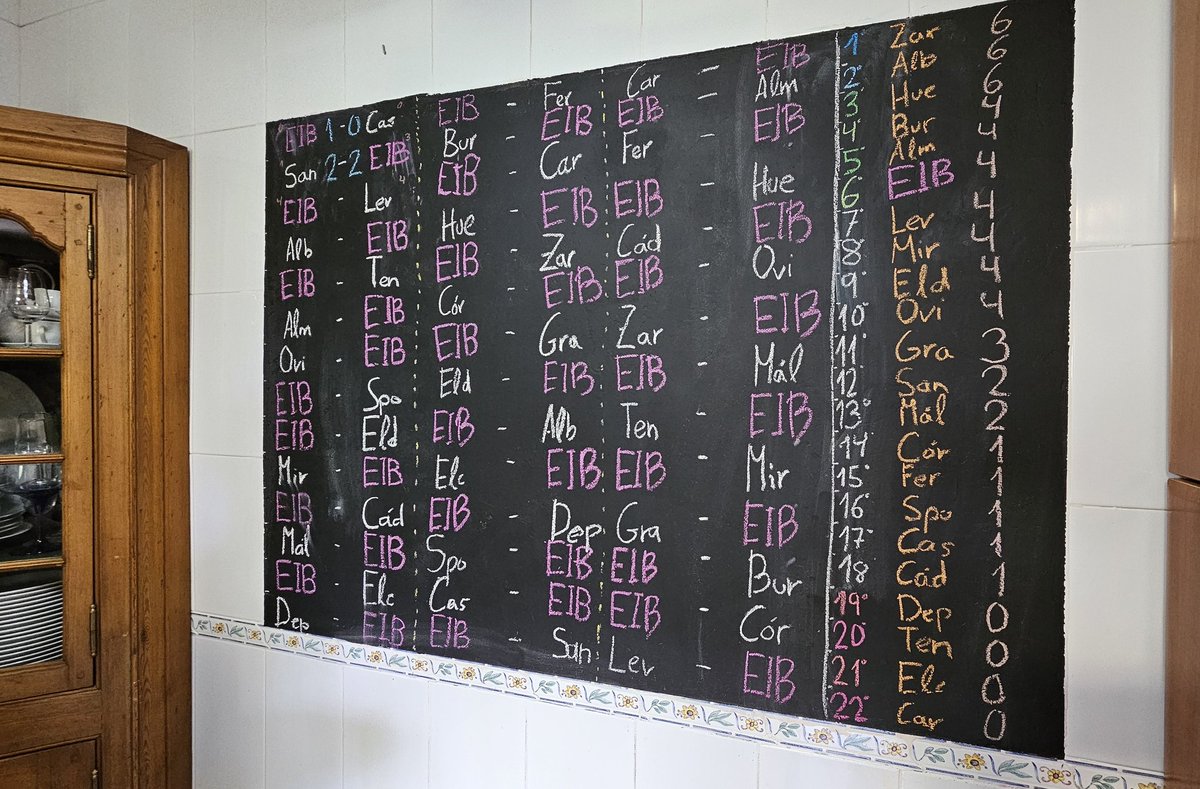 EIB 1-0 Cas
San 2-2 EIB
EIB - Lev
Alb - EIB
EIB - Ten
Alm - EIB
Ovi - EIB
EIB - Spo
EIB - Eld
Mir - EIB
EIB - Cád
Mál - EIB
EIB - Elc
Dep - EIB
EIB - Fer
Bur - EIB
EIB - Car
Hue - EIB
EIB - Zar
Cór - EIB
EIB - Gra
Eld - EIB
EIB - Alb
Elc - EIB
EIB - Dep
Spo - EIB
Cas - EIB
EIB - San
Car - EIB
EIB - Alm
Fer - EIB
EIB - Hue
Cád - EIB
EIB - Ovi
Zar - EIB
EIB - Mál
Ten - EIB
EIB - Mir
Gra - EIB
EIB - Bur
EIB - Cór
Lev - EIB
1° Zar 6
2° Alb 6
3° Hue 6
4° Bur 4
5° Alm 4
6° EIB 4
7° Lev 4
8° Mir 4
9° Eld 4
10° Ovi 4
11° Gra 3
12° San 2
13° Mál 2
14° Cór 1
15° Fer 1
16° Spo 1
17° Cas 1
18° Cád 1
19° Dep 0
20° Ten 0
21° Elc 0
22° Car 0